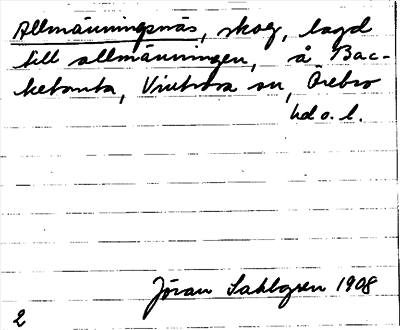 Allmänningsnäs, skog, lagd
till allmänningen, å Bac-
ketomta, Vintrosa sn, Örebro
hd o. l.
Jöran Sahlgren 1908
2